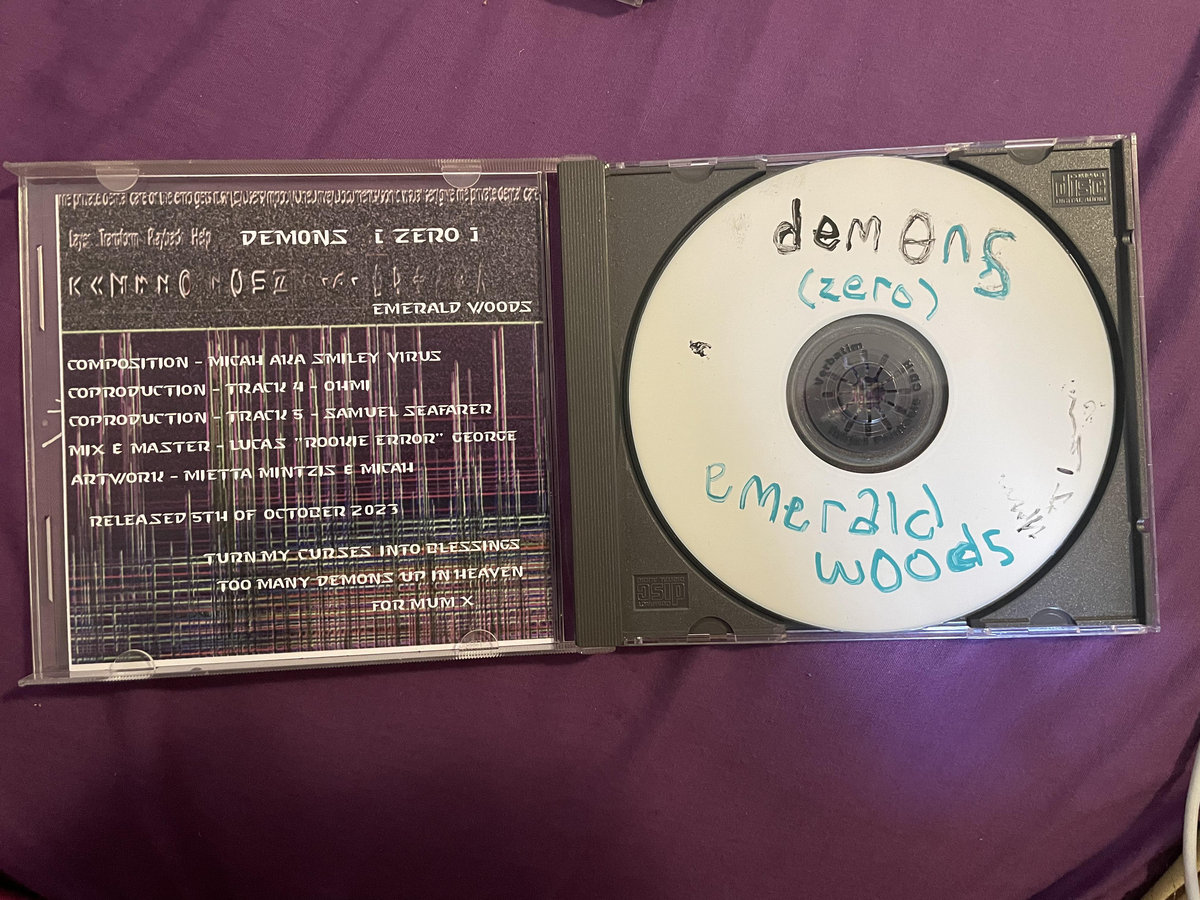 Layer Transform Playback Help
DEMONS [ ZERO ]
EMERALD WOODS
COMPOSITION - MICAH AKA SMILEY VIRUS
COPRODUCTION - TRACK 4 - OHMI
COPRODUCTION - TRACK 5 - SAMUEL SEAFARER
MIX & MASTER - LUCAS "ROOKIE ERROR" GEORGE
ARTWORK - MIETTA MINTZIS & MICAH
RELEASED 5TH OF OCTOBER 2023
TURN MY CURSES INTO BLESSINGS
TOO MANY DEMONS UP IN HEAVEN
FOR MUM X
demons
(zero)
emerald
woods
Verbatim
COMPACT
disc
DIGITAL AUDIO